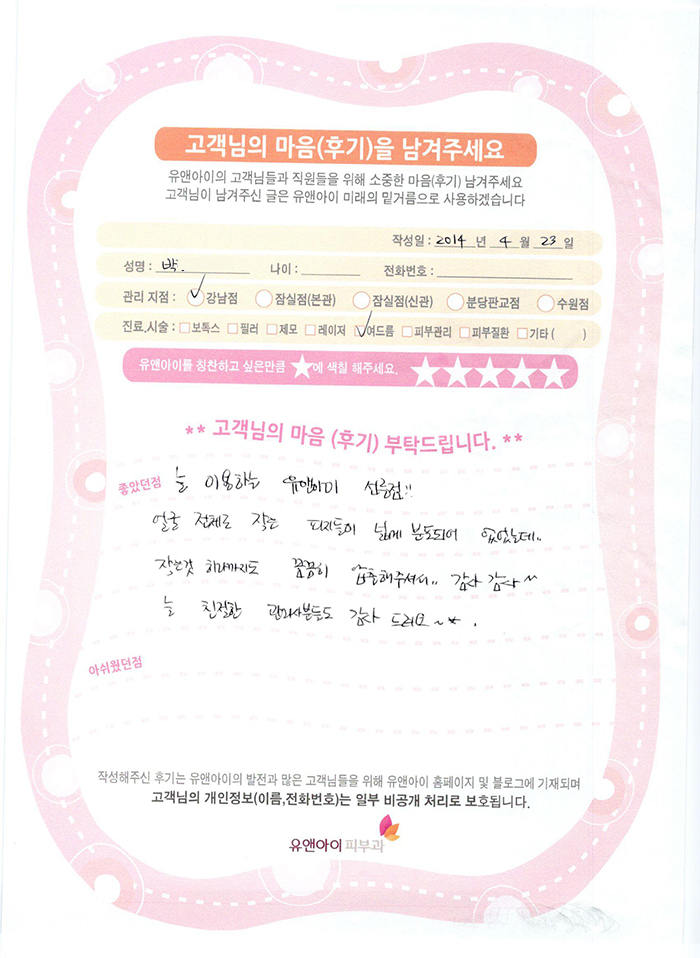 고객님의 마음(후기)을 남겨주세요
유앤아이의 고객님들과 직원들을 위해 소중한 마음(후기) 남겨주세요
고객님이 남겨주신 글은 유앤아이 미래의 밑거름으로 사용하겠습니다
작성일 : 2014 년 4 월 23 일
성명 : 박. 나이 : 전화번호 :
관리 지점 : 강남점 잠실점(본관) 잠실점(신관) 분당판교점 수원점
진료,시술 : 보톡스 필러 제모 레이저 여드름 피부관리 피부질환 기타 ( )
유앤아이를 칭찬하고 싶은만큼 ★에 색칠 해주세요. ★★★★★
** 고객님의 마음 (후기) 부탁드립니다. **
좋았던점 늘 이용하는 유앤아이 선릉점!!
얼굴 전체로 작은 피지들이 넓게 분포되어 있었는데..
작은것 하나까지도 꼼꼼히 압출해주셔서.. 감사 감사~
늘 친절한 관리사분들도 감사 드려요~★.
아쉬웠던점
작성해주신 후기는 유앤아이의 발전과 많은 고객님들을 위해 유앤아이 홈페이지 및 블로그에 기재되며
고객님의 개인정보(이름,전화번호)는 일부 비공개 처리로 보호됩니다.
유앤아이 피부과